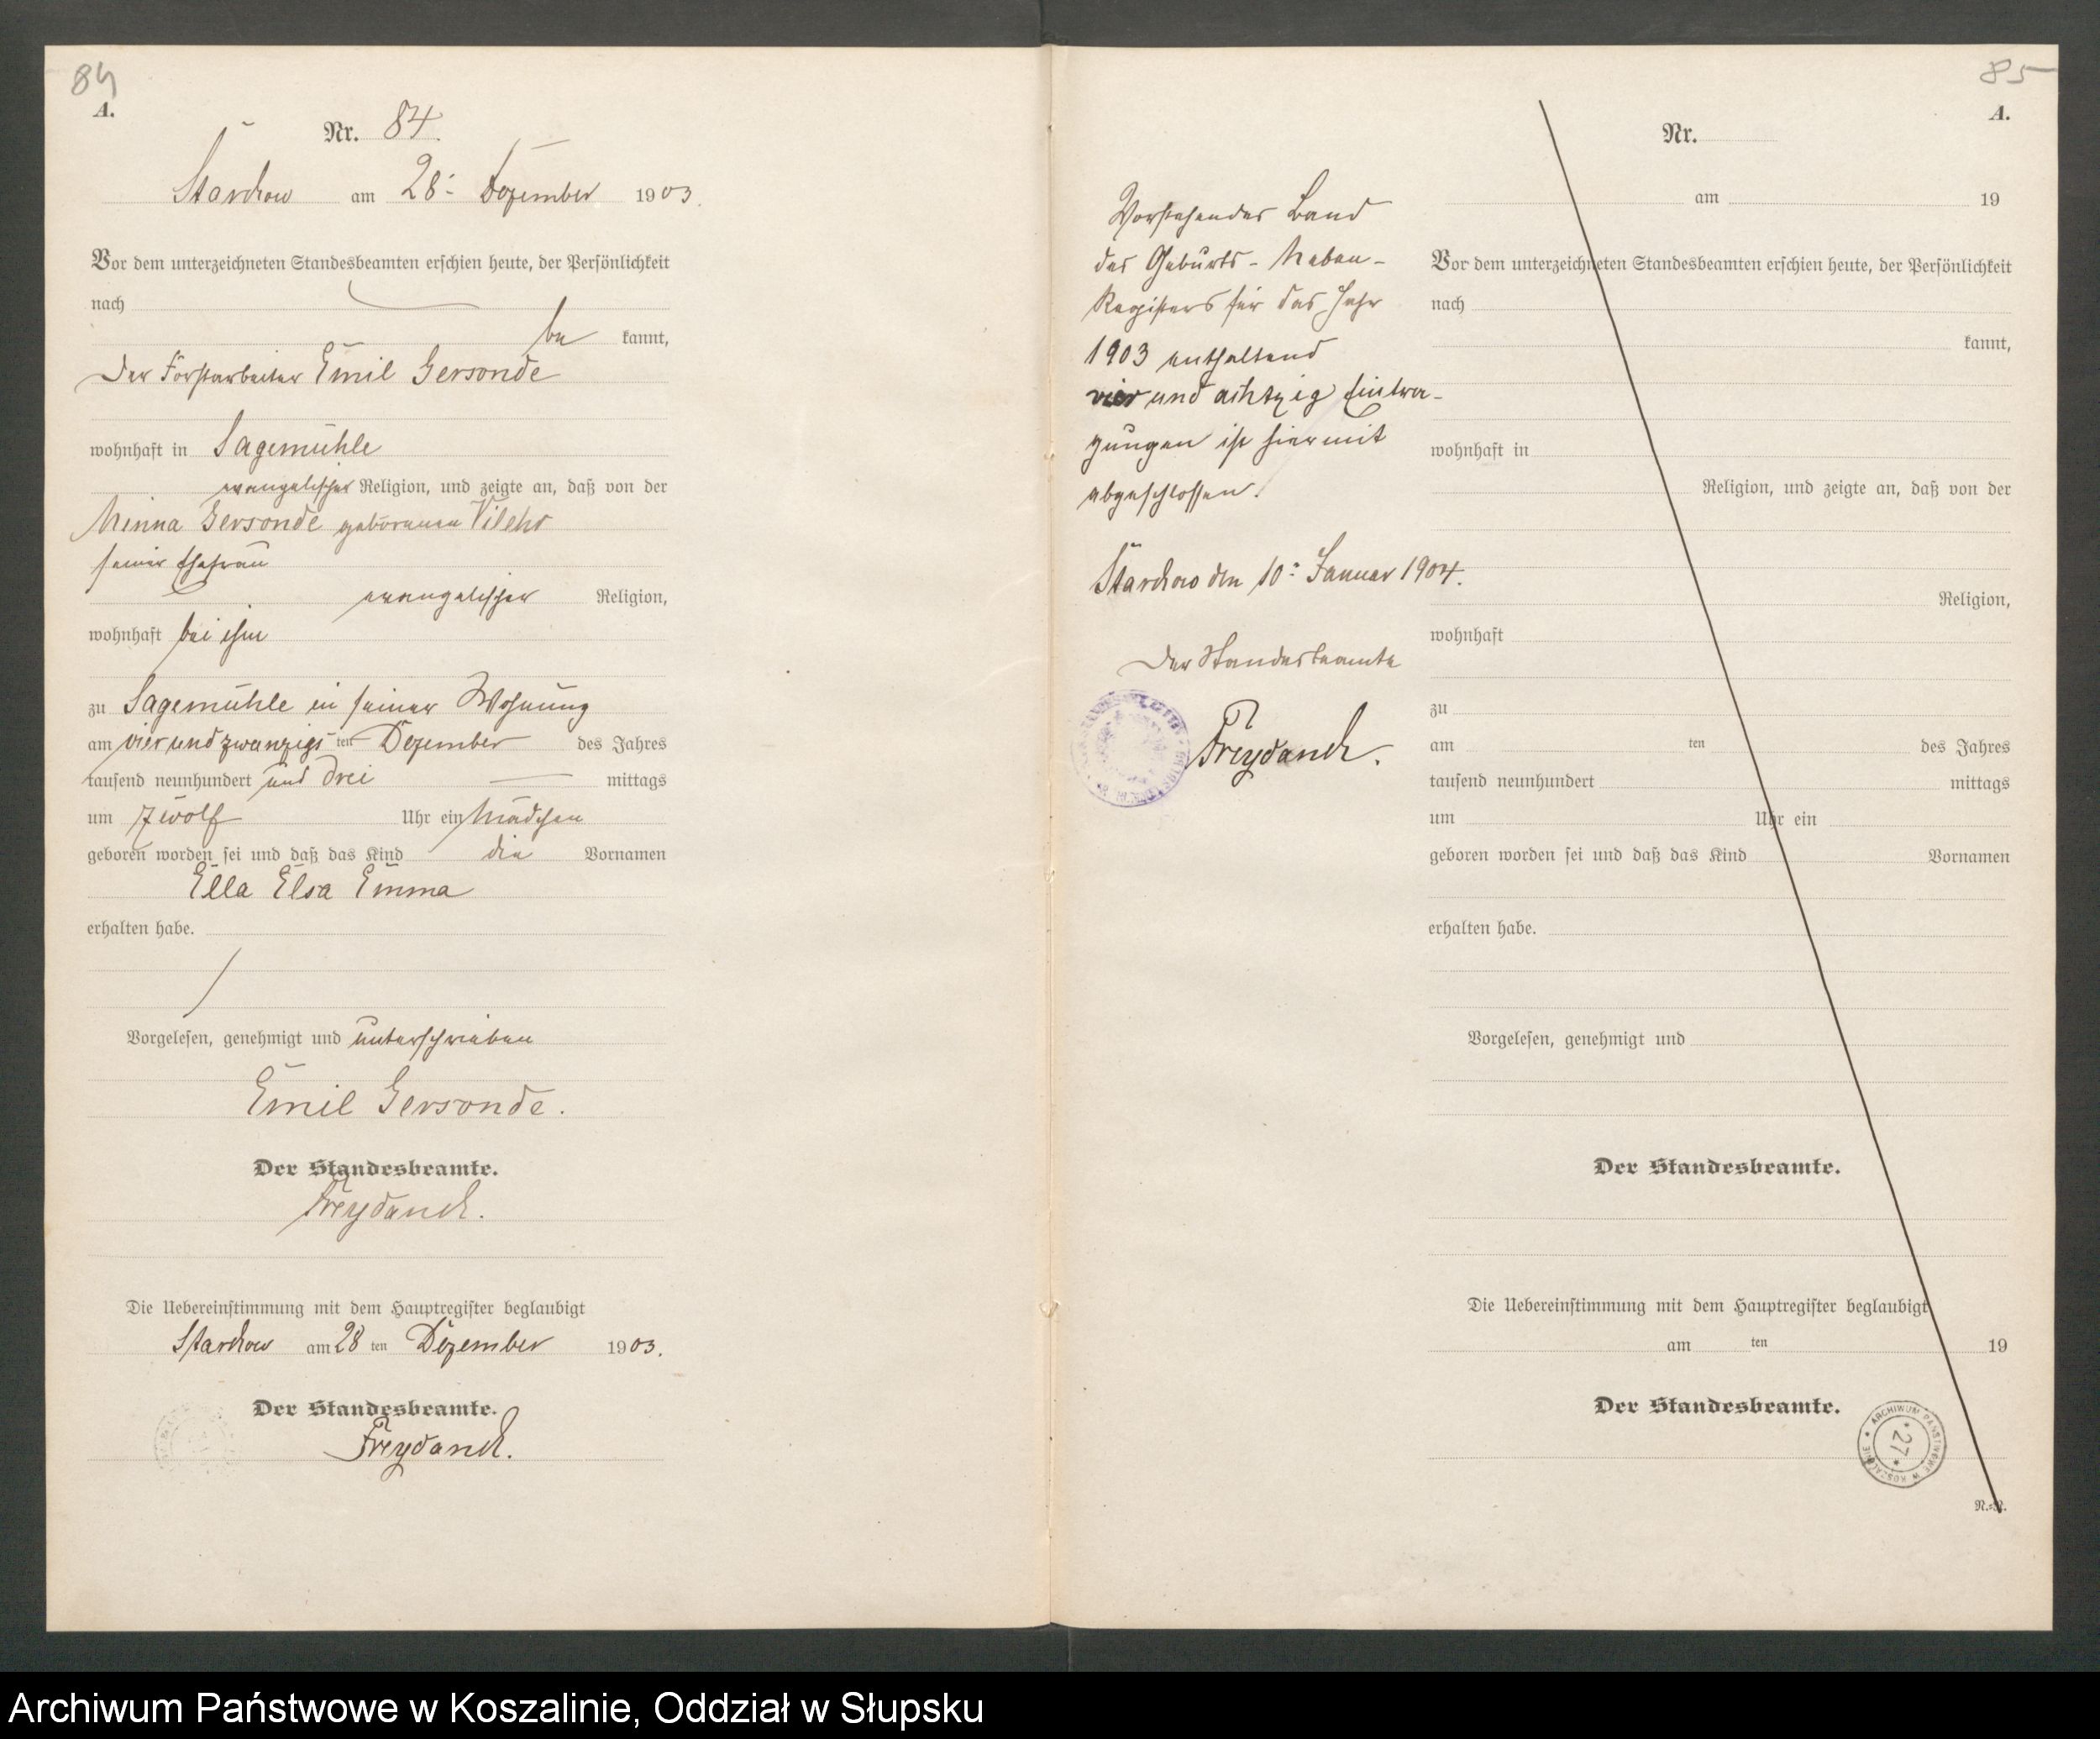 84
A.
Nr. 84.
Starckow am 28. Dezember 1903.
Vor dem unterzeichneten Standesbeamten erschien heute, der Persönlichkeit
nach
be kannt,
der Forstarbeiter Emil Gersonde
wohnhaft in Sagemühle
evangelischer Religion, und zeigte an, daß von der
Minna Gersonde geborenen
seiner Ehefrau
evangelischer Religion,
wohnhaft bei ihm
zu Sagemühle in seiner Wohnung
am vier und zwanzigs ten Dezember des Jahres
tausend neunhundert und drei mittags
um zwölf Uhr ein Mädchen
geboren worden sei und daß das Kind die Vornamen
Ella Elsa Emma
erhalten habe.
Vorgelesen, genehmigt und unterschrieben
Emil Gersonde.
Der Standesbeamte.
Freydanck.
Die Uebereinstimmung mit dem Hauptregister beglaubigt
Starckow am 28 ten Dezember 1903.
Der Standesbeamte.
Freydanck.
85
A.
Vorstehender Band
des Geburts-Neben-
Registers für das Jahr
1903 enthaltend
vier und achtzig Eintra-
gungen ist hiermit
abgeschlossen.
Starckow den 10. Januar 1904.
Der Standesbeamte
Freydanck.
Nr.
am 19
Vor dem unterzeichneten Standesbeamten erschien heute, der Persönlichkeit
nach
kannt,
wohnhaft in
Religion, und zeigte an, daß von der
Religion,
wohnhaft
zu
am ten des Jahres
tausend neunhundert mittags
um Uhr ein
geboren worden sei und daß das Kind Vornamen
erhalten habe.
Vorgelesen, genehmigt und
Der Standesbeamte.
Die Uebereinstimmung mit dem Hauptregister beglaubigt
am ten 19
Der Standesbeamte.
ARCHIWUM PAŃSTWOWE W KOSZALINIE
* 27 *
Archiwum Państwowe w Koszalinie, Oddział w Słupsku